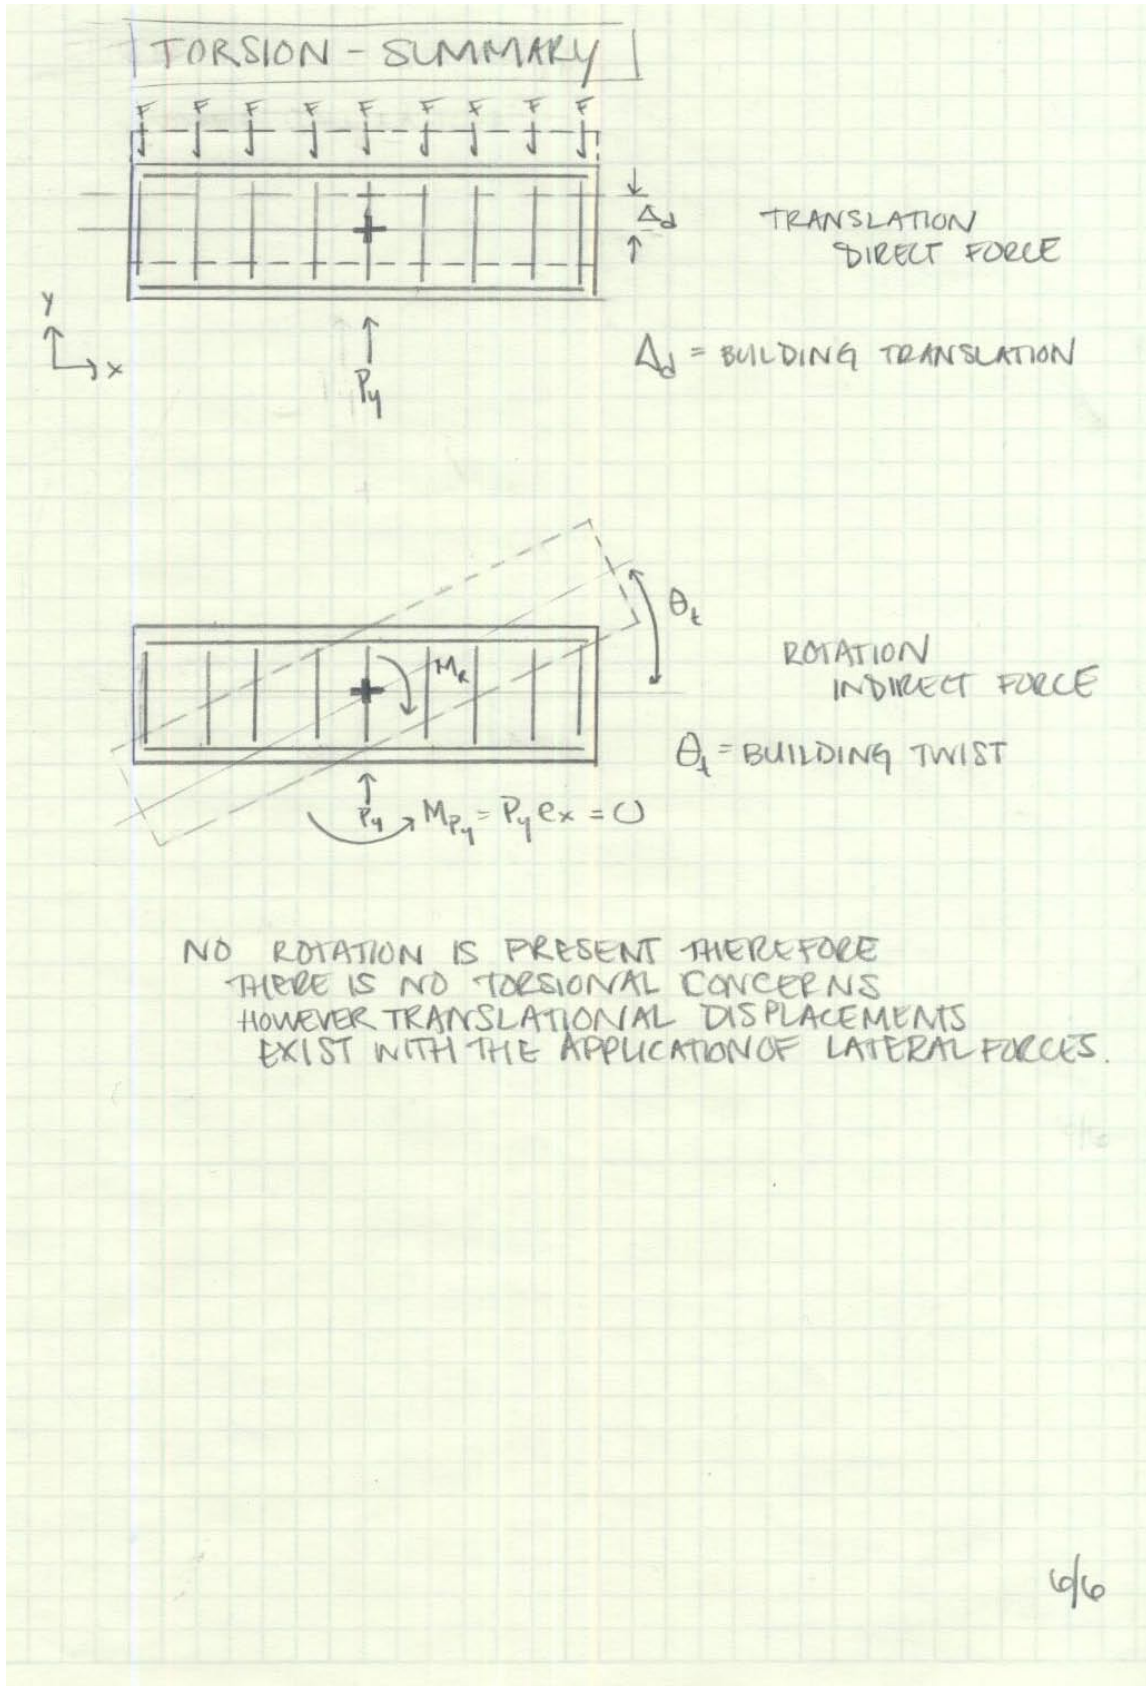 TORSION - SUMMARY
F F F F F F F F F
Δd
TRANSLATION
DIRECT FORCE
Y
X
Py
Δd = BUILDING TRANSLATION
θt
MR
ROTATION
INDIRECT FORCE
θt = BUILDING TWIST
Py
MPy = Py ex = 0
NO ROTATION IS PRESENT THEREFORE
THERE IS NO TORSIONAL CONCERNS
HOWEVER TRANSLATIONAL DISPLACEMENTS
EXIST WITH THE APPLICATION OF LATERAL FORCES.
6/6